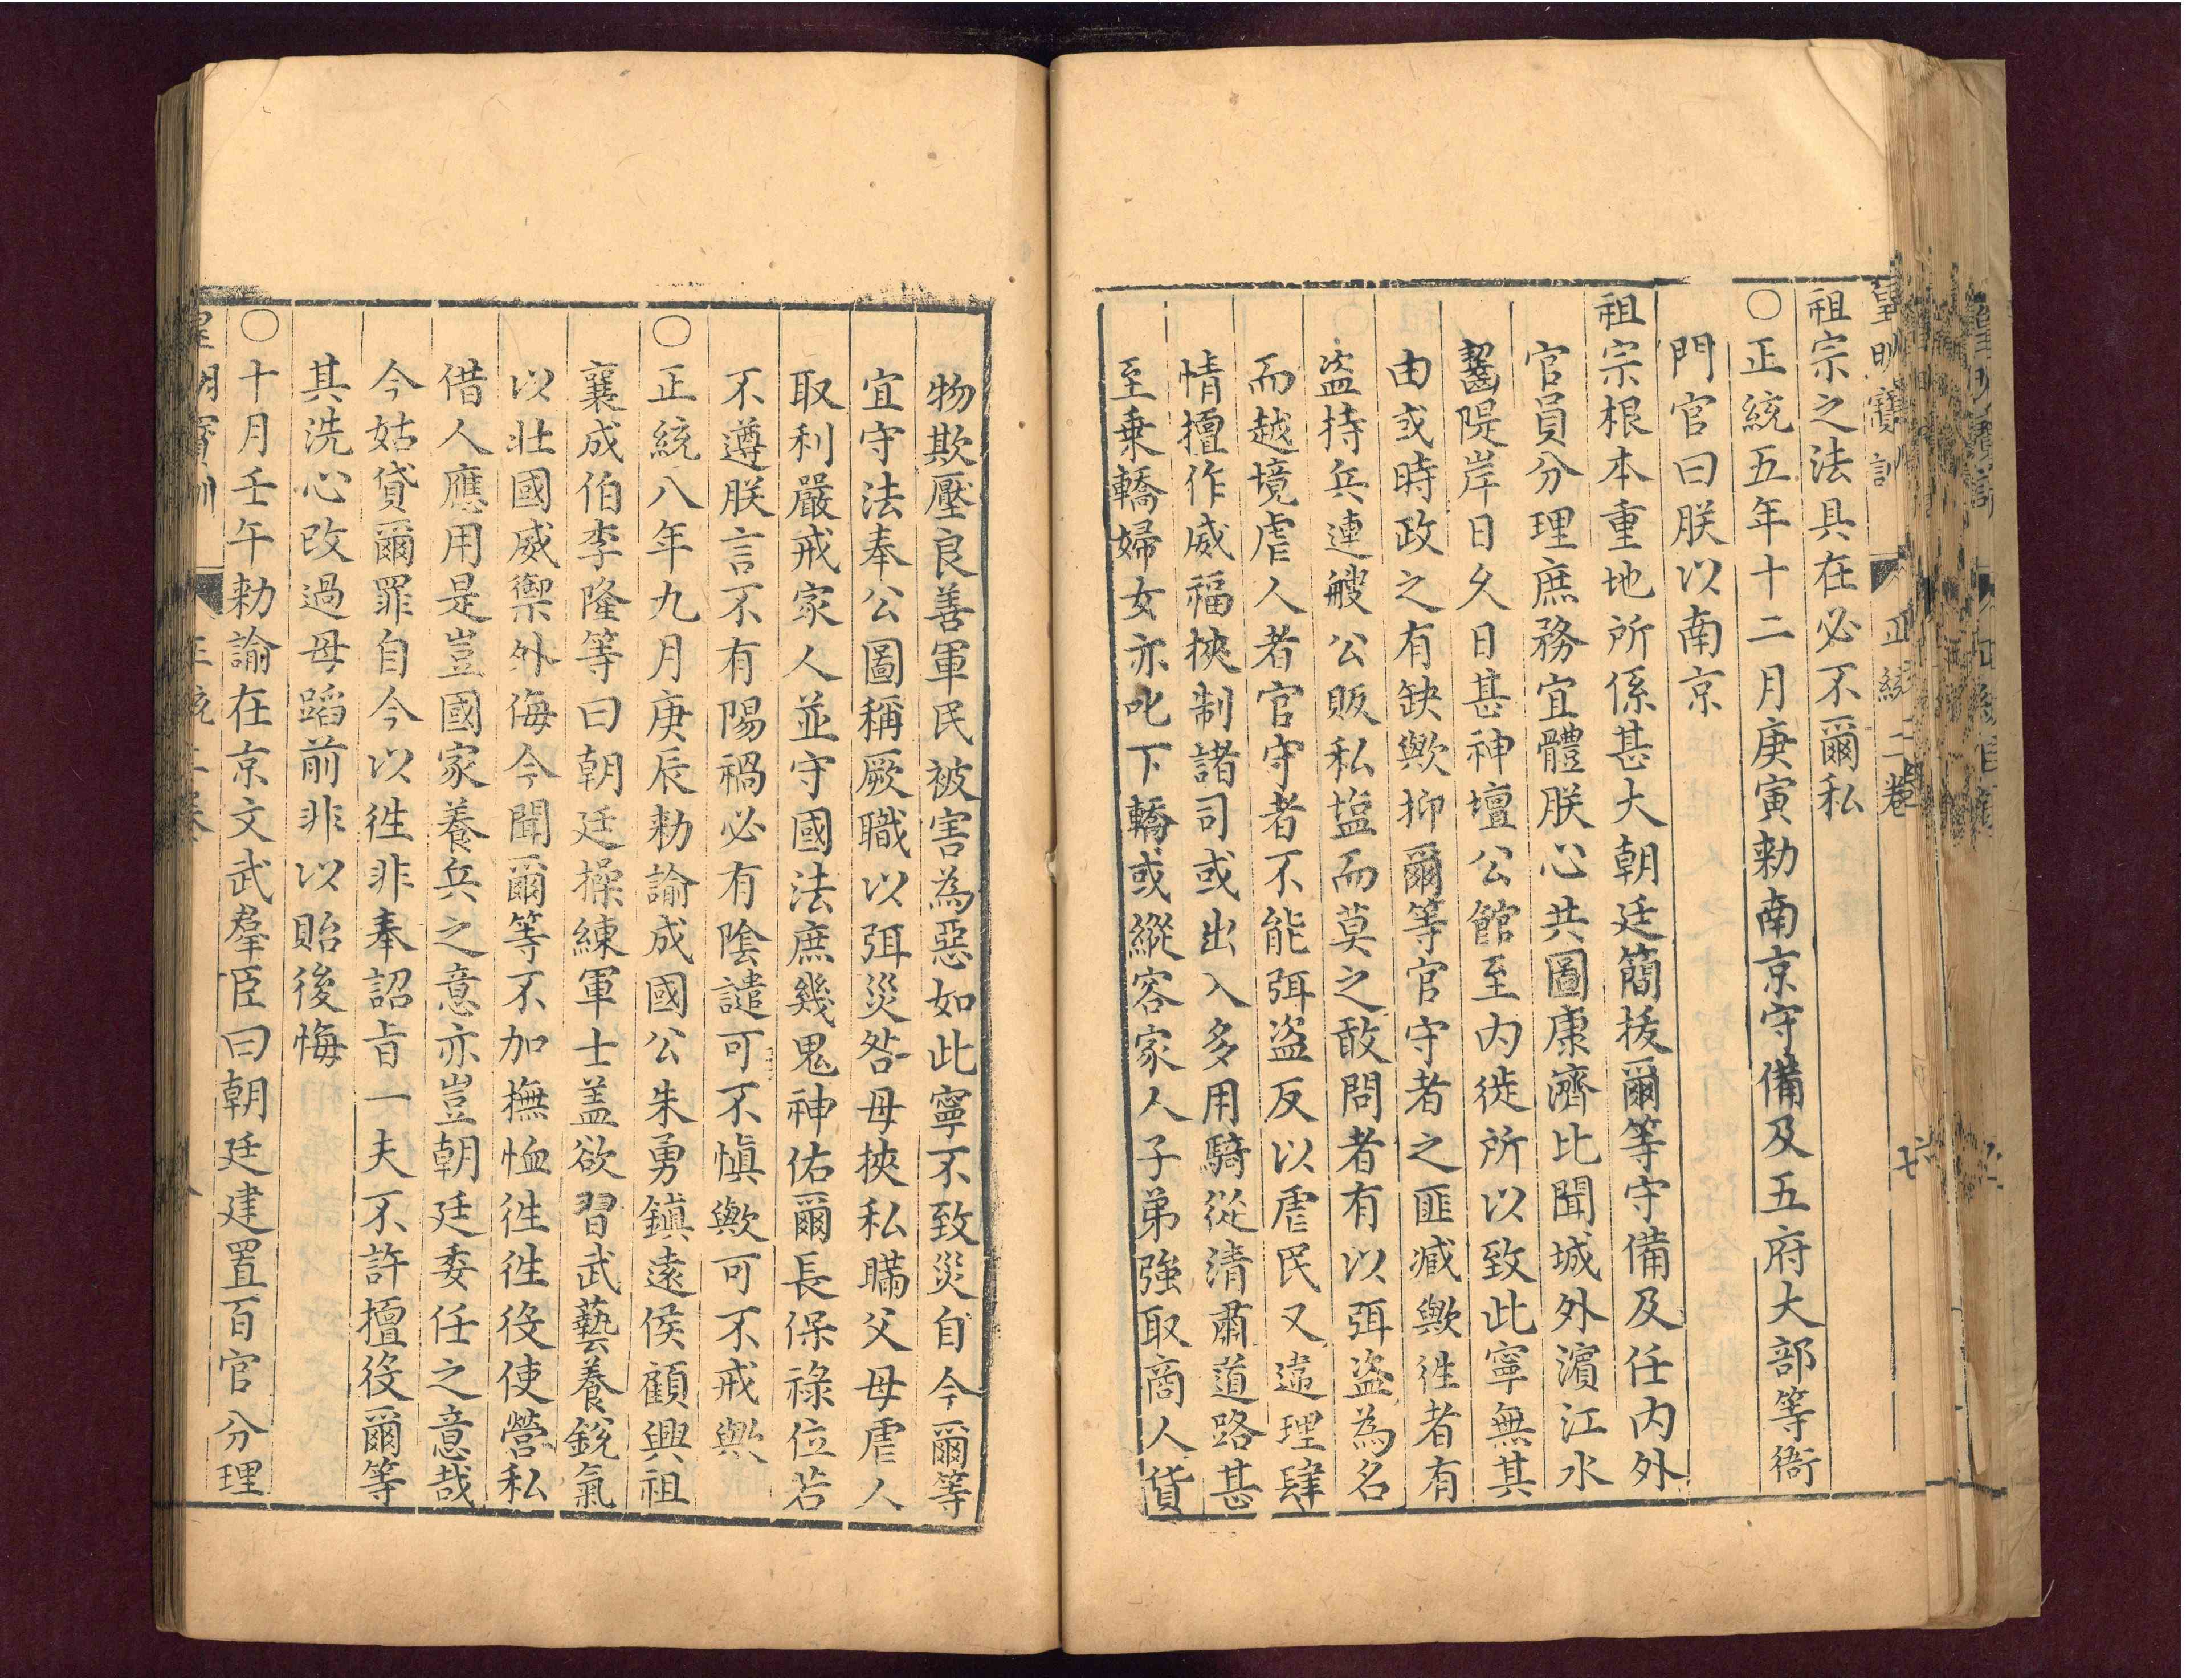 皇明寶訓 正統二卷
祖宗之法具在必不爾私
○正統五年十二月庚寅勑南京守備及五府大部等衙
門官曰朕以南京
祖宗根本重地所係甚大朝廷簡拔爾等守備及任内外
官員分理庶務宜體朕心共圖康濟比聞城外濱江水
齧隄岸日久日甚神壇公館至内徙所以致此寧無其
由或時政之有缺歟抑爾等官守者之匪臧歟徃者有
盜持兵連艘公販私塩而莫之敢問者有以弭盜為名
而越境虐人者官守者不能弭盜反以虐民又違理肆
情擅作威福挾制諸司或出入多用騎從清肅道路甚
至乗轎婦女亦叱下轎或縱容家人子弟強取商人貨
物欺壓良善軍民被害為惡如此寧不致災自今爾等
宜守法奉公圖稱厥職以弭災咎毋挾私瞞父母虐人
取利嚴戒家人並守國法庶幾鬼神佑爾長保祿位若
不遵朕言不有陽禍必有陰譴可不慎歟可不戒歟
○正統八年九月庚辰勑諭成國公朱勇鎮遠侯顧興祖
襄成伯李隆等曰朝廷操練軍士盖欲習武藝養銳氣
以壯國威禦外侮今聞爾等不加撫恤徃徃役使營私
借人應用是豈國家養兵之意亦豈朝廷委任之意哉
今姑貸爾罪自今以徃非奉詔旨一夫不許擅役爾等
其洗心改過毋蹈前非以貽後悔
○十月壬午勑諭在京文武羣臣曰朝廷建置百官分理